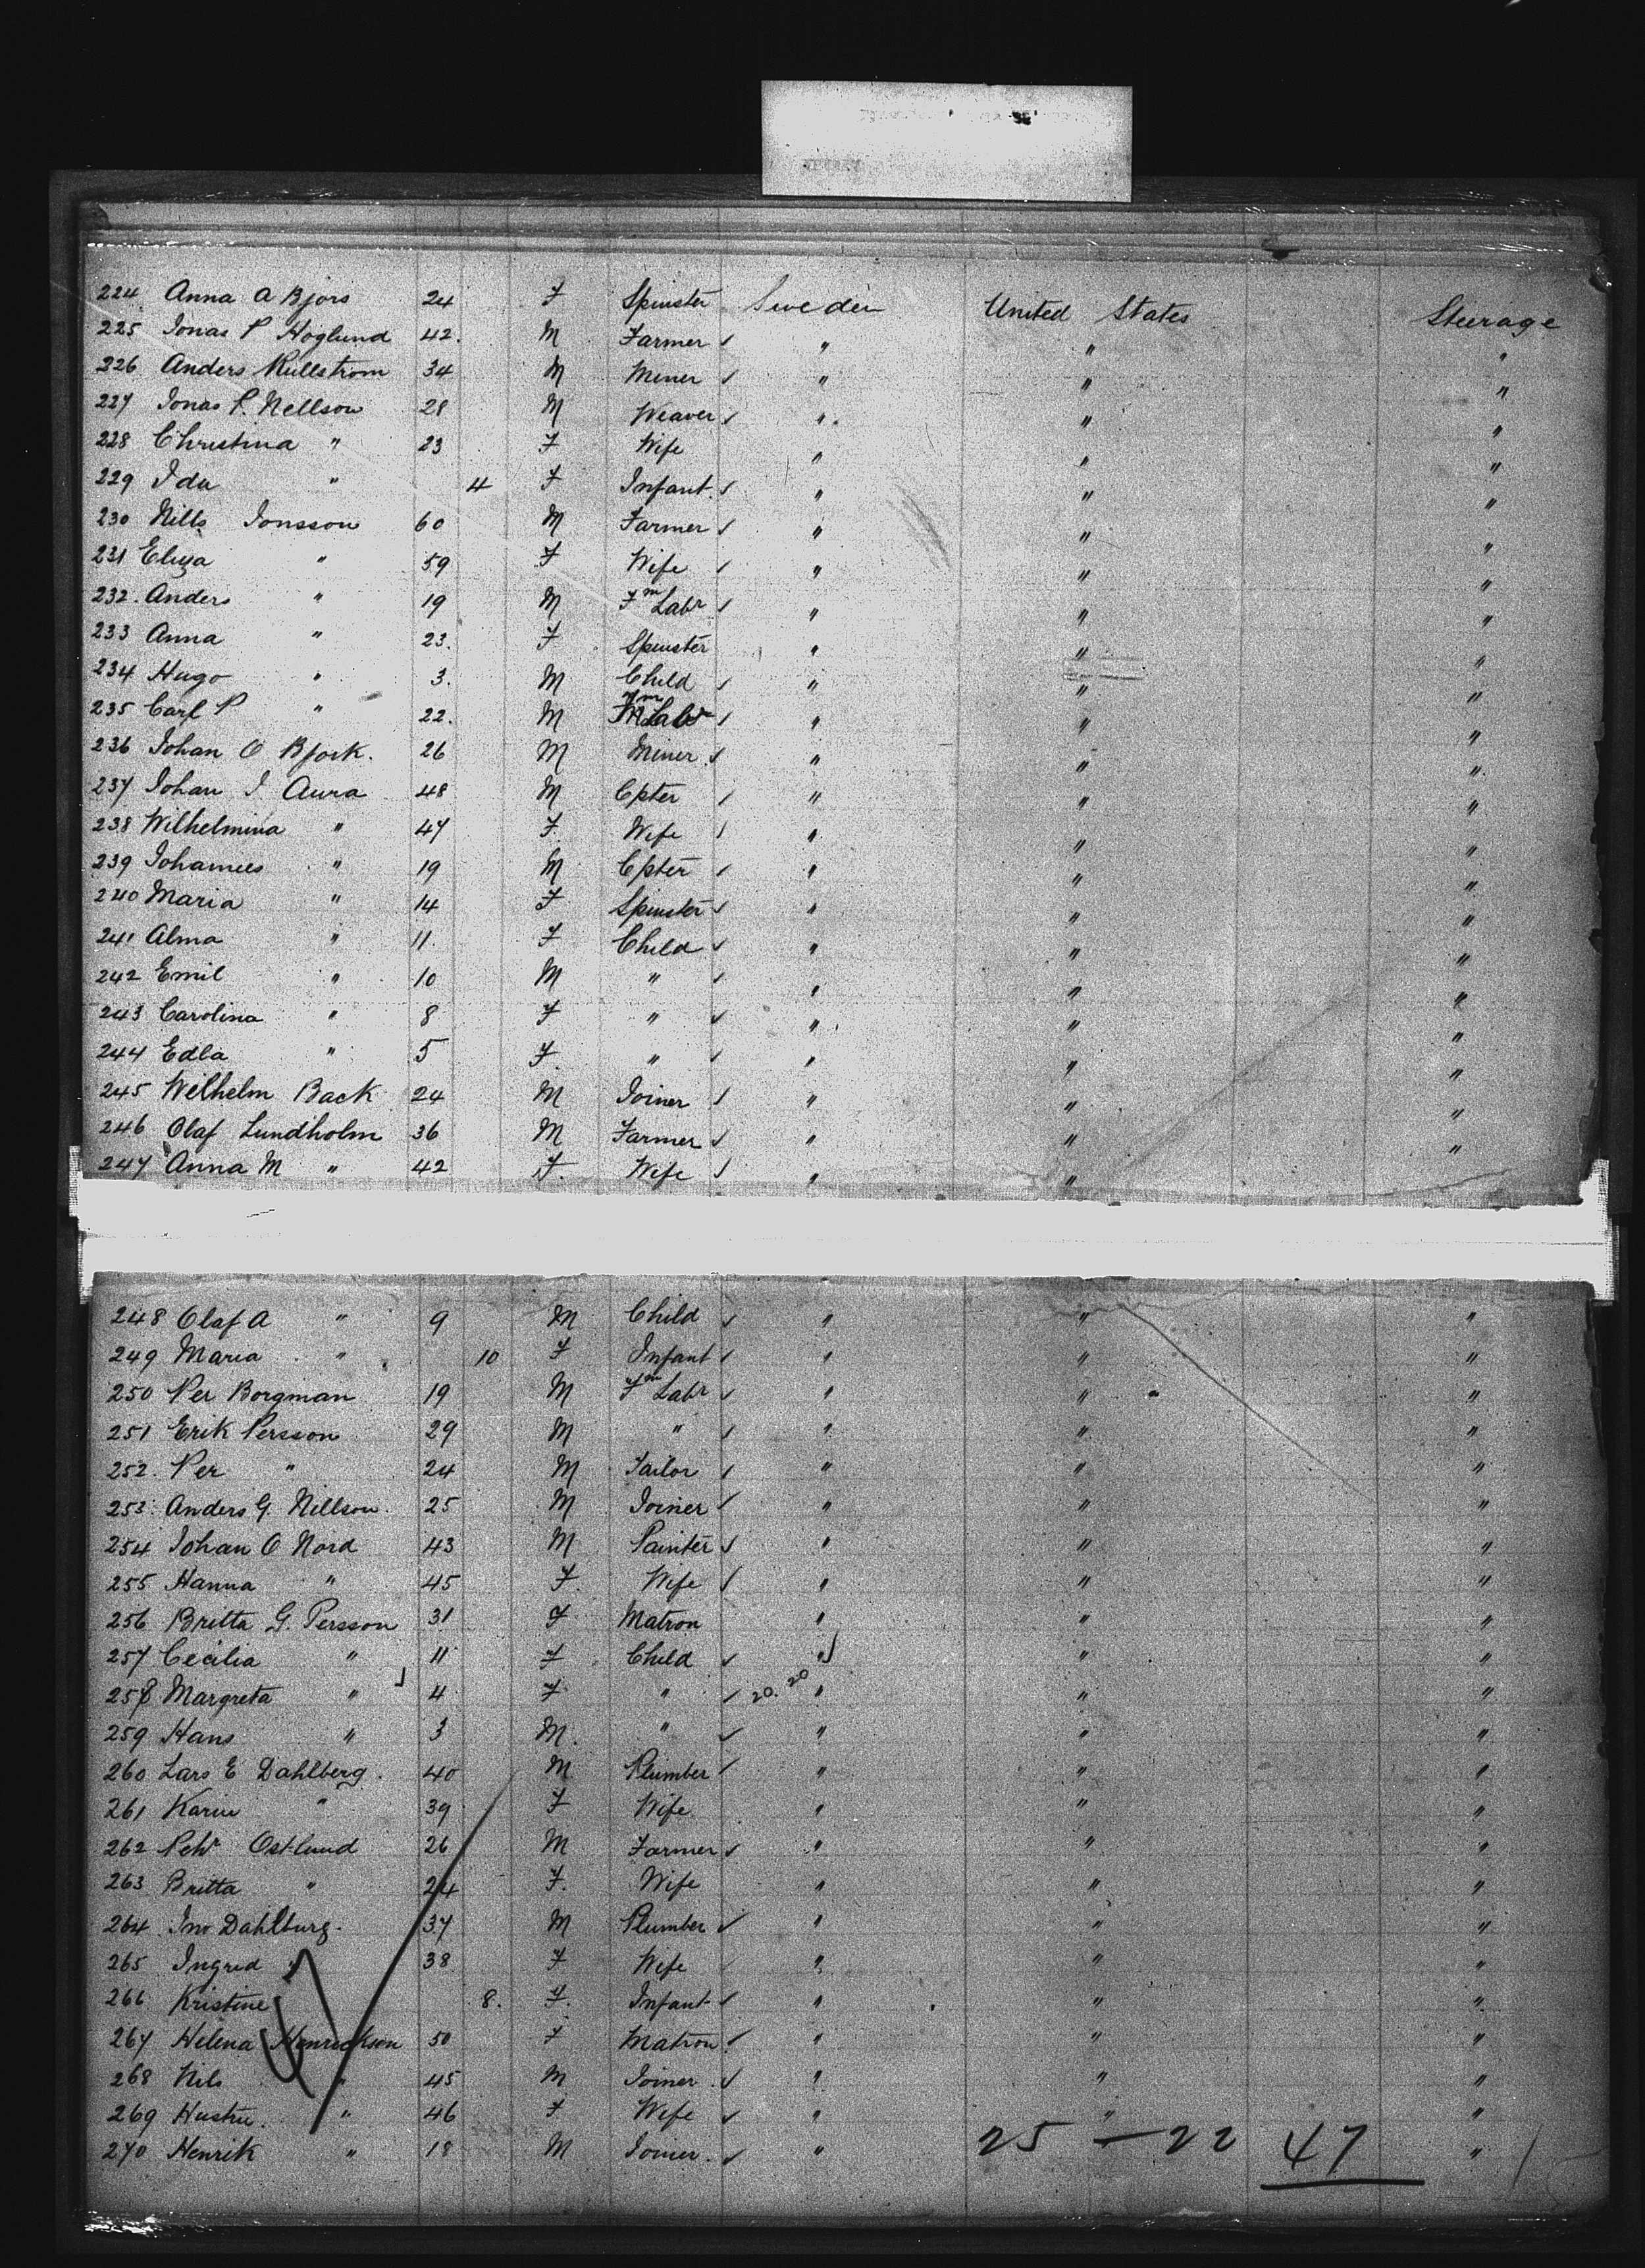 224 Anna A Bjors 24 F Spinster Sweden United States Steerage
225 Jonas P Hoglund 42. M Farmer ✓ " " "
226 Anders Kullstrom 34 M Miner ✓ " " "
227 Jonas P. Nellson 28 M Weaver ✓ " " "
228 Christina " 23 F Wife " " "
229 Ida " 4 F Infant. ✓ " " "
230 Nills Jonsson 60 M Farmer ✓ " " "
231 Eliza " 59 F Wife ✓ " " "
232. Anders " 19 M Fm Labr ✓ " " "
233 Anna " 23. F Spinster " " "
234 Hugo " 3. M Child ✓ " " "
235 Carl P " 22. M Fm Labr ✓ " " "
236 Johan O Bjork. 26 M Miner. ✓ " " "
237 Johan J. Aura 48 M Cpter ✓ " " "
238 Wilhelmina " 47 F. Wife ✓ " " "
239 Johannes " 19 M Cpter ✓ " " "
240 Maria " 14 F Spinster ✓ " " "
241 Alma " 11. F Child ✓ " " "
242 Emil " 10 M " ✓ " " "
243 Carolina " 8 F " ✓ " " "
244 Edla " 5 F. " ✓ " " "
245 Wilhelm Back 24 M Joiner ✓ " " "
246 Olaf Lundholm 36 M Farmer ✓ " " "
247 Anna M " 42 F. Wife ✓ " " "
248 Olaf A " 9 M Child ✓ " " "
249 Maria " 10 F Infant ✓ " " "
250 Per Borgman 19 M Fm Labr ✓ " " "
251 Erik Persson 29 M " ✓ " " "
252. Per " 24 M Tailor ✓ " " "
253. Anders G. Nillson. 25 M Joiner ✓ " " "
254 Johan O Nord 43 M Painter ✓ " " "
255 Hanna " 45 F. Wife ✓ " " "
256 Britta G. Persson 31 F Matron " " "
257 Cecilia " 11 F Child ✓ " " "
258 Margreta " 4 F " ✓ 20. 20 " " "
259 Hans " 3 M. " ✓ " " "
260 Lars E Dahlberg. 40 M Plumber ✓ " " "
261 Karin " 39 F Wife " " "
262 Pehr Ostlund 26 M Farmer ✓ " " "
263 Britta " 24 F. Wife " " "
264. Jno Dahlburg. 37 M Plumber ✓ " " "
265 Ingrid " 38 F Wife " " "
266 Kristine 8. F. Infant ✓ " " "
267 Helena Henrickson 50 F Matron ✓ " " "
268 Nils " 45 M Joiner. ✓ " " "
269 Hustru. " 46 F Wife ✓ " " "
270 Henrik " 18 M Joiner. ✓ " 25 — 22 47 "